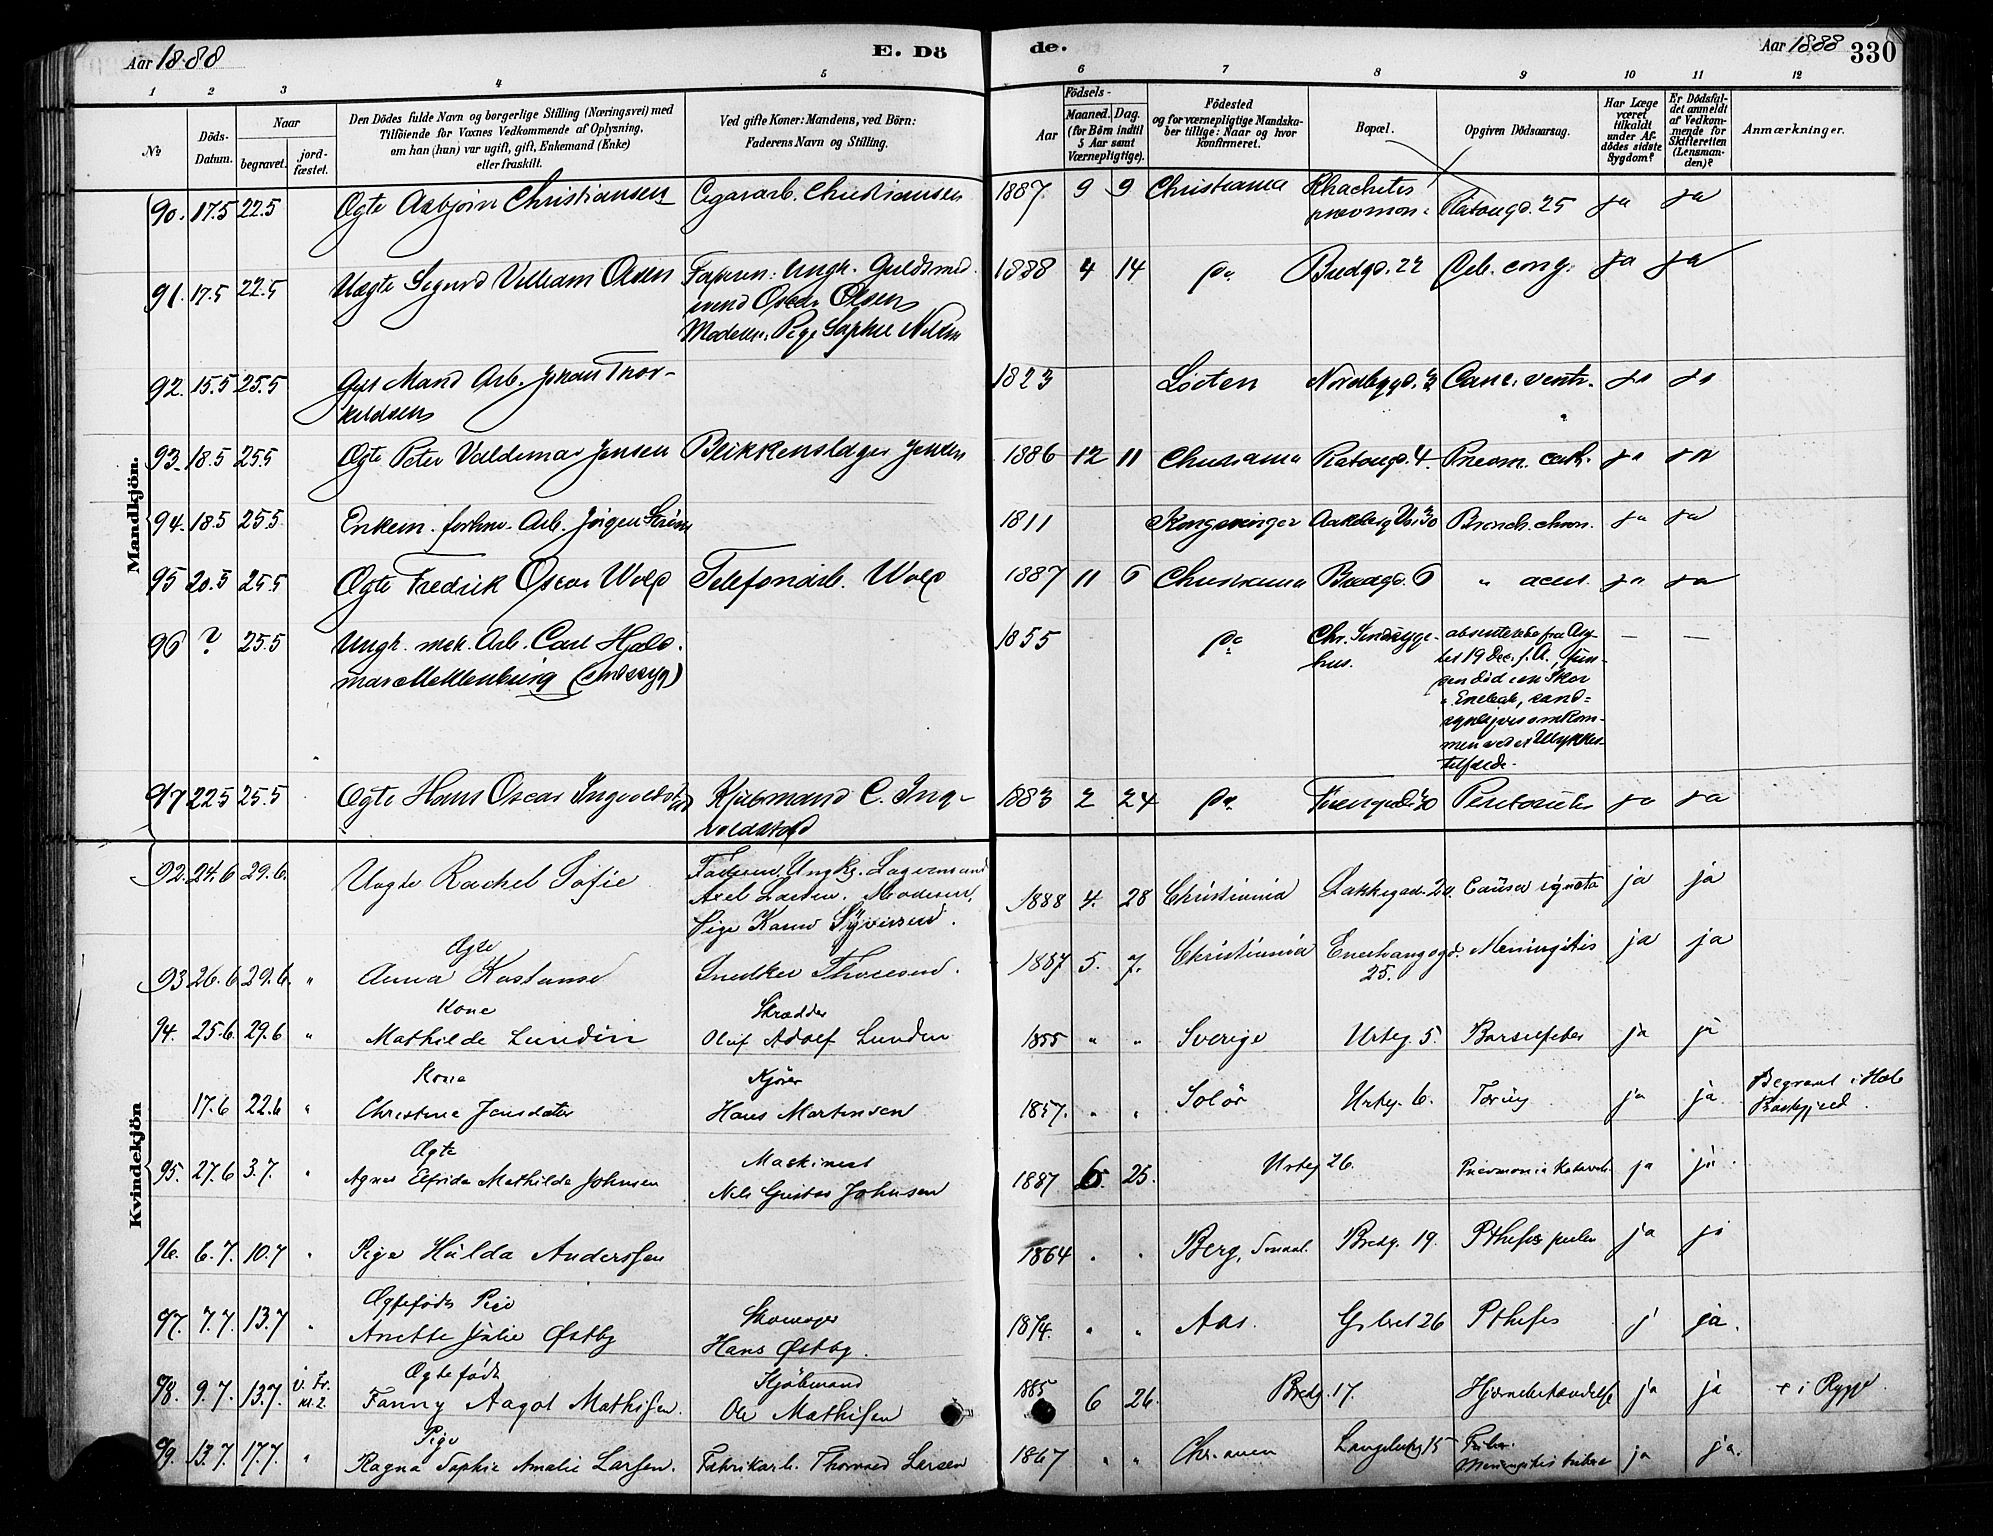 Aar 1888
E. Dö
de.
Aar 1888
330
1 2 3 4 5 6 7 8 9 10 11 12
No
Döds-Datum.
Naar
begravet.
jord-fæstet.
Den Dödes fulde Navn og borgerlige Stilling (Næringsvei) med
Tilföiende for Voxnes Vedkommende af Oplysning,
om han (hun) var ugift, gift, Enkemand (Enke)
eller fraskilt.
Ved gifte Koner: Mandens, ved Börn:
Faderens Navn og Stilling.
Födsels-
Aar
Maaned. Dag.
(for Börn indtil
5 Aar samt
Værnepligtige).
Födested
og for værnepligtige Mandska-
ber tillige: Naar og hvor
konfirmeret.
Bopæl.
Opgiven Dödsaarsag.
Har Læge
været
tilkaldt
under Af-
dödes sidste
Sygdom?
Er Dödsfal-
det anmeldt
af Vedkom-
mende for
Skifteretten
(Lensman-
den)?
Anmærkninger.
Mandkjön.
90. 17.5 22.5 Ægte Asbjørn Christiansen Cigararb. Christiansen 1887. 9 9 Christiania Rhachitis pnevmon. 25 ja ja
91. 17.5 22.5 Uægte Sigurd Villiam Olsen Faderen: Ungk. Guldsmed-
svend Oscar Olsen
Moderen: Pige Sophie Nilsen 1888 4 14 do Bredgd. 22 Deb. cong. ja ja
92. 15.5 25.5 Gift Mand Arb. Johan Thor-
kildsen 1823 Löiten Canc. ventr. ja ja
93. 18.5 25.5 Ægte Peter Valdemar Jensen Blikkenslager Jensen 1886 12 11 Christiania 4. Pnevm. cath. ja ja
94. 18.5 25.5 Enkem. forhv. Arb. Jørgen 1811 Kongsvinger Aakeberg V. 30 Bronch. chron. ja ja
95 20.5 25.5 Ægte Fredrik Oscar Wolf Telefonarb. Wolf 1887 11 6 Christiania Bredgd. 6 " acut. ja ja
96 ? 25.5 Ungk. mek. Arb. Carl Hjal-
mar Meklenburg (sindssyg) 1855 do Chr. Sindssyge-
hus. absenterede fra Asy-
let 19 Dec. f. A., fun-
den død i en Skov
i Enebak, sand-
synligvis omkom-
men ved et Ulykkes-
tilfælde. — —
97 22.5 25.5 Ægte Hans Oscar Ingvoldstad Kjøbmand C. Ing-
voldstad 1883 2 24 do 20 Peritonitis ja ja
Kvindekjön
92. 24.6 29.6. Uægte Rachel Sofie Faderen, Ungk.
Axel Larsen. Moderen,
Pige Karen Syversen. 1888 4. 28 Christiania Lakkegad. Causa ignota ja ja
93 26.6 29.6. " Ægte
Anna Konstanse Snedker Thoresen. 1887 5. 7. Christiania Enerhaugsgd.
25. Meningitis ja ja
94. 25.6 29.6 " Kone
Mathilde Lundin Skrædder
Oluf Adolf Lundin 1855 " " Sverige Urteg. 5. Barselfeber ja ja
17.6 22.6 " Kone
Christine Jensdatter Kjører
Hans Martinsen 1857. " " Solør Urteg. 6. Tæring ja ja. Begravet i Hole
95. 27.6 3.7. " Ægte
Agnes Elfrida Mathilde Johnsen Maskinist
Nils Gustav Johnsen 1887 6. 25. Urteg 26. Pnevmonia katarrh. ja ja.
96. 6.7. 10.7 " Pige Hulda Anderssen 1864 " " Berg, Smaal. Bredg. 19. Pthisis pulm ja ja
97. 7.7. 13.7 " Ægtefødt Pige
Anette Julie Østby Skomager
Hans Østby. 1874. " " Aas. 26 Pthisis j ja.
98. 9.7. 13.7. Ægtefødt
Fanny Aagot Mathisen. Kjøbmand
Ole Mathisen 1885 6 26. Bredg. 17. Hjernebetændelse ja ja i Rygge.
99. 13.7. 17.7. " Pige
Ragna Sophie Amalie Larsen. Fabrikarb. Thorvald Larsen 1867 " " Chr.aven 15
Meningitis tuberc ja ja.